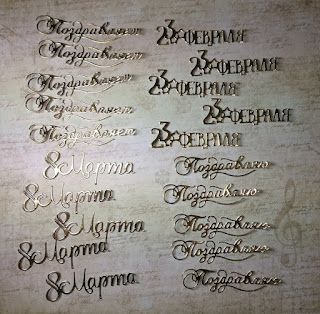 Поздравляем
23 ФЕВРАЛЯ
Поздравляем
23 ФЕВРАЛЯ
Поздравляем
23 ФЕВРАЛЯ
Поздравляем
23 ФЕВРАЛЯ
Поздравляем
23 ФЕВРАЛЯ
8 Марта
Поздравляю
8 Марта
Поздравляю
8 Марта
Поздравляю
8 Марта
Поздравляю
8 Марта
Поздравляю